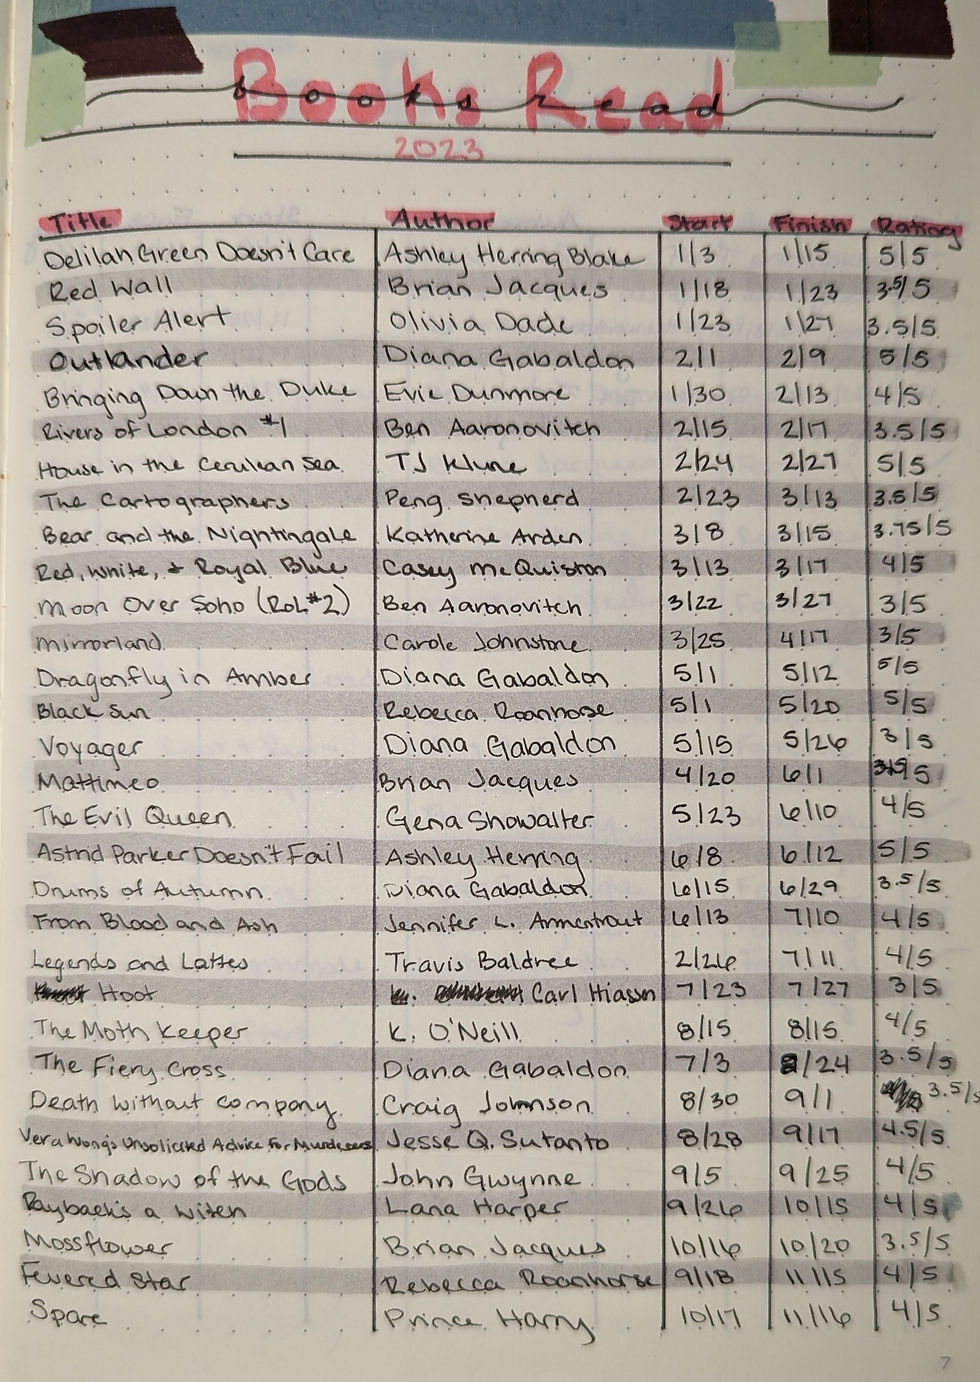 Books Read
books read
2023
Title Author Start Finish Rating
Delilah Green Doesn't Care Ashley Herring Blake 1/3 1/15 5/5
Red Wall Brian Jacques 1/18 1/23 3.5/5
Spoiler Alert Olivia Dade 1/23 1/27 3.5/5
Outlander Diana Gabaldon 2/1 2/9 5/5
Bringing Down the Duke Evie Dunmore 1/30 2/13 4/5
Rivers of London #1 Ben Aaronovitch 2/15 2/17 3.5/5
House in the Cerulean Sea TJ Klune 2/24 2/27 5/5
The Cartographers Peng Shepherd 2/23 3/13 3.5/5
Bear and the Nightingale Katherine Arden 3/8 3/15 3.75/5
Red, White, + Royal Blue Casey McQuiston 3/13 3/17 4/5
Moon Over Soho (RoL #2) Ben Aaronovitch 3/22 3/27 3/5
Mirrorland Carole Johnstone 3/25 4/17 3/5
Dragonfly in Amber Diana Gabaldon 5/1 5/12 5/5
Black Sun Rebecca Roanhorse 5/1 5/20 5/5
Voyager Diana Gabaldon 5/15 5/26 3/5
Mattimeo Brian Jacques 4/20 6/1 /5
The Evil Queen Gena Showalter 5/23 6/10 4/5
Astrid Parker Doesn't Fail Ashley Herring 6/8 6/12 5/5
Drums of Autumn Diana Gabaldon 6/15 6/29 3.5/5
From Blood and Ash Jennifer L. Armentrout 6/13 7/10 4/5
Legends and Lattes Travis Baldree 2/26 7/11 4/5
Hoot Carl Hiassn 7/23 7/27 3/5
The Moth Keeper K. O'Neill 8/15 8/15 4/5
The Fiery Cross Diana Gabaldon 7/3 8/24 3.5/5
Death Without Company Craig Johnson 8/30 9/1 3.5/5
Vera Wong's Unsolicited Advice for Murderers Jesse Q. Sutanto 8/28 9/17 4.5/5
The Shadow of the Gods John Gwynne 9/5 9/25 4/5
Payback's a Witch Lana Harper 9/26 10/15 4/5
Mossflower Brian Jacques 10/16 10/20 3.5/5
Fevered Star Rebecca Roanhorse 9/18 11/15 4/5
Spare Prince Harry 10/17 11/16 4/5
7